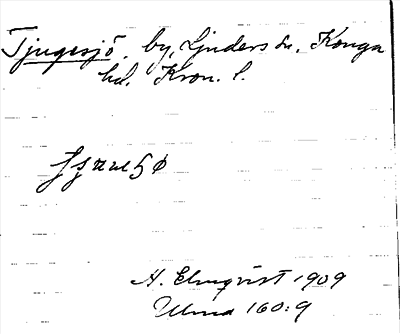 Tjugesjö, by, Ljuders sn. Konga
hd. Kron. l.
H. Elmqvist 1909
Ulma 160:9